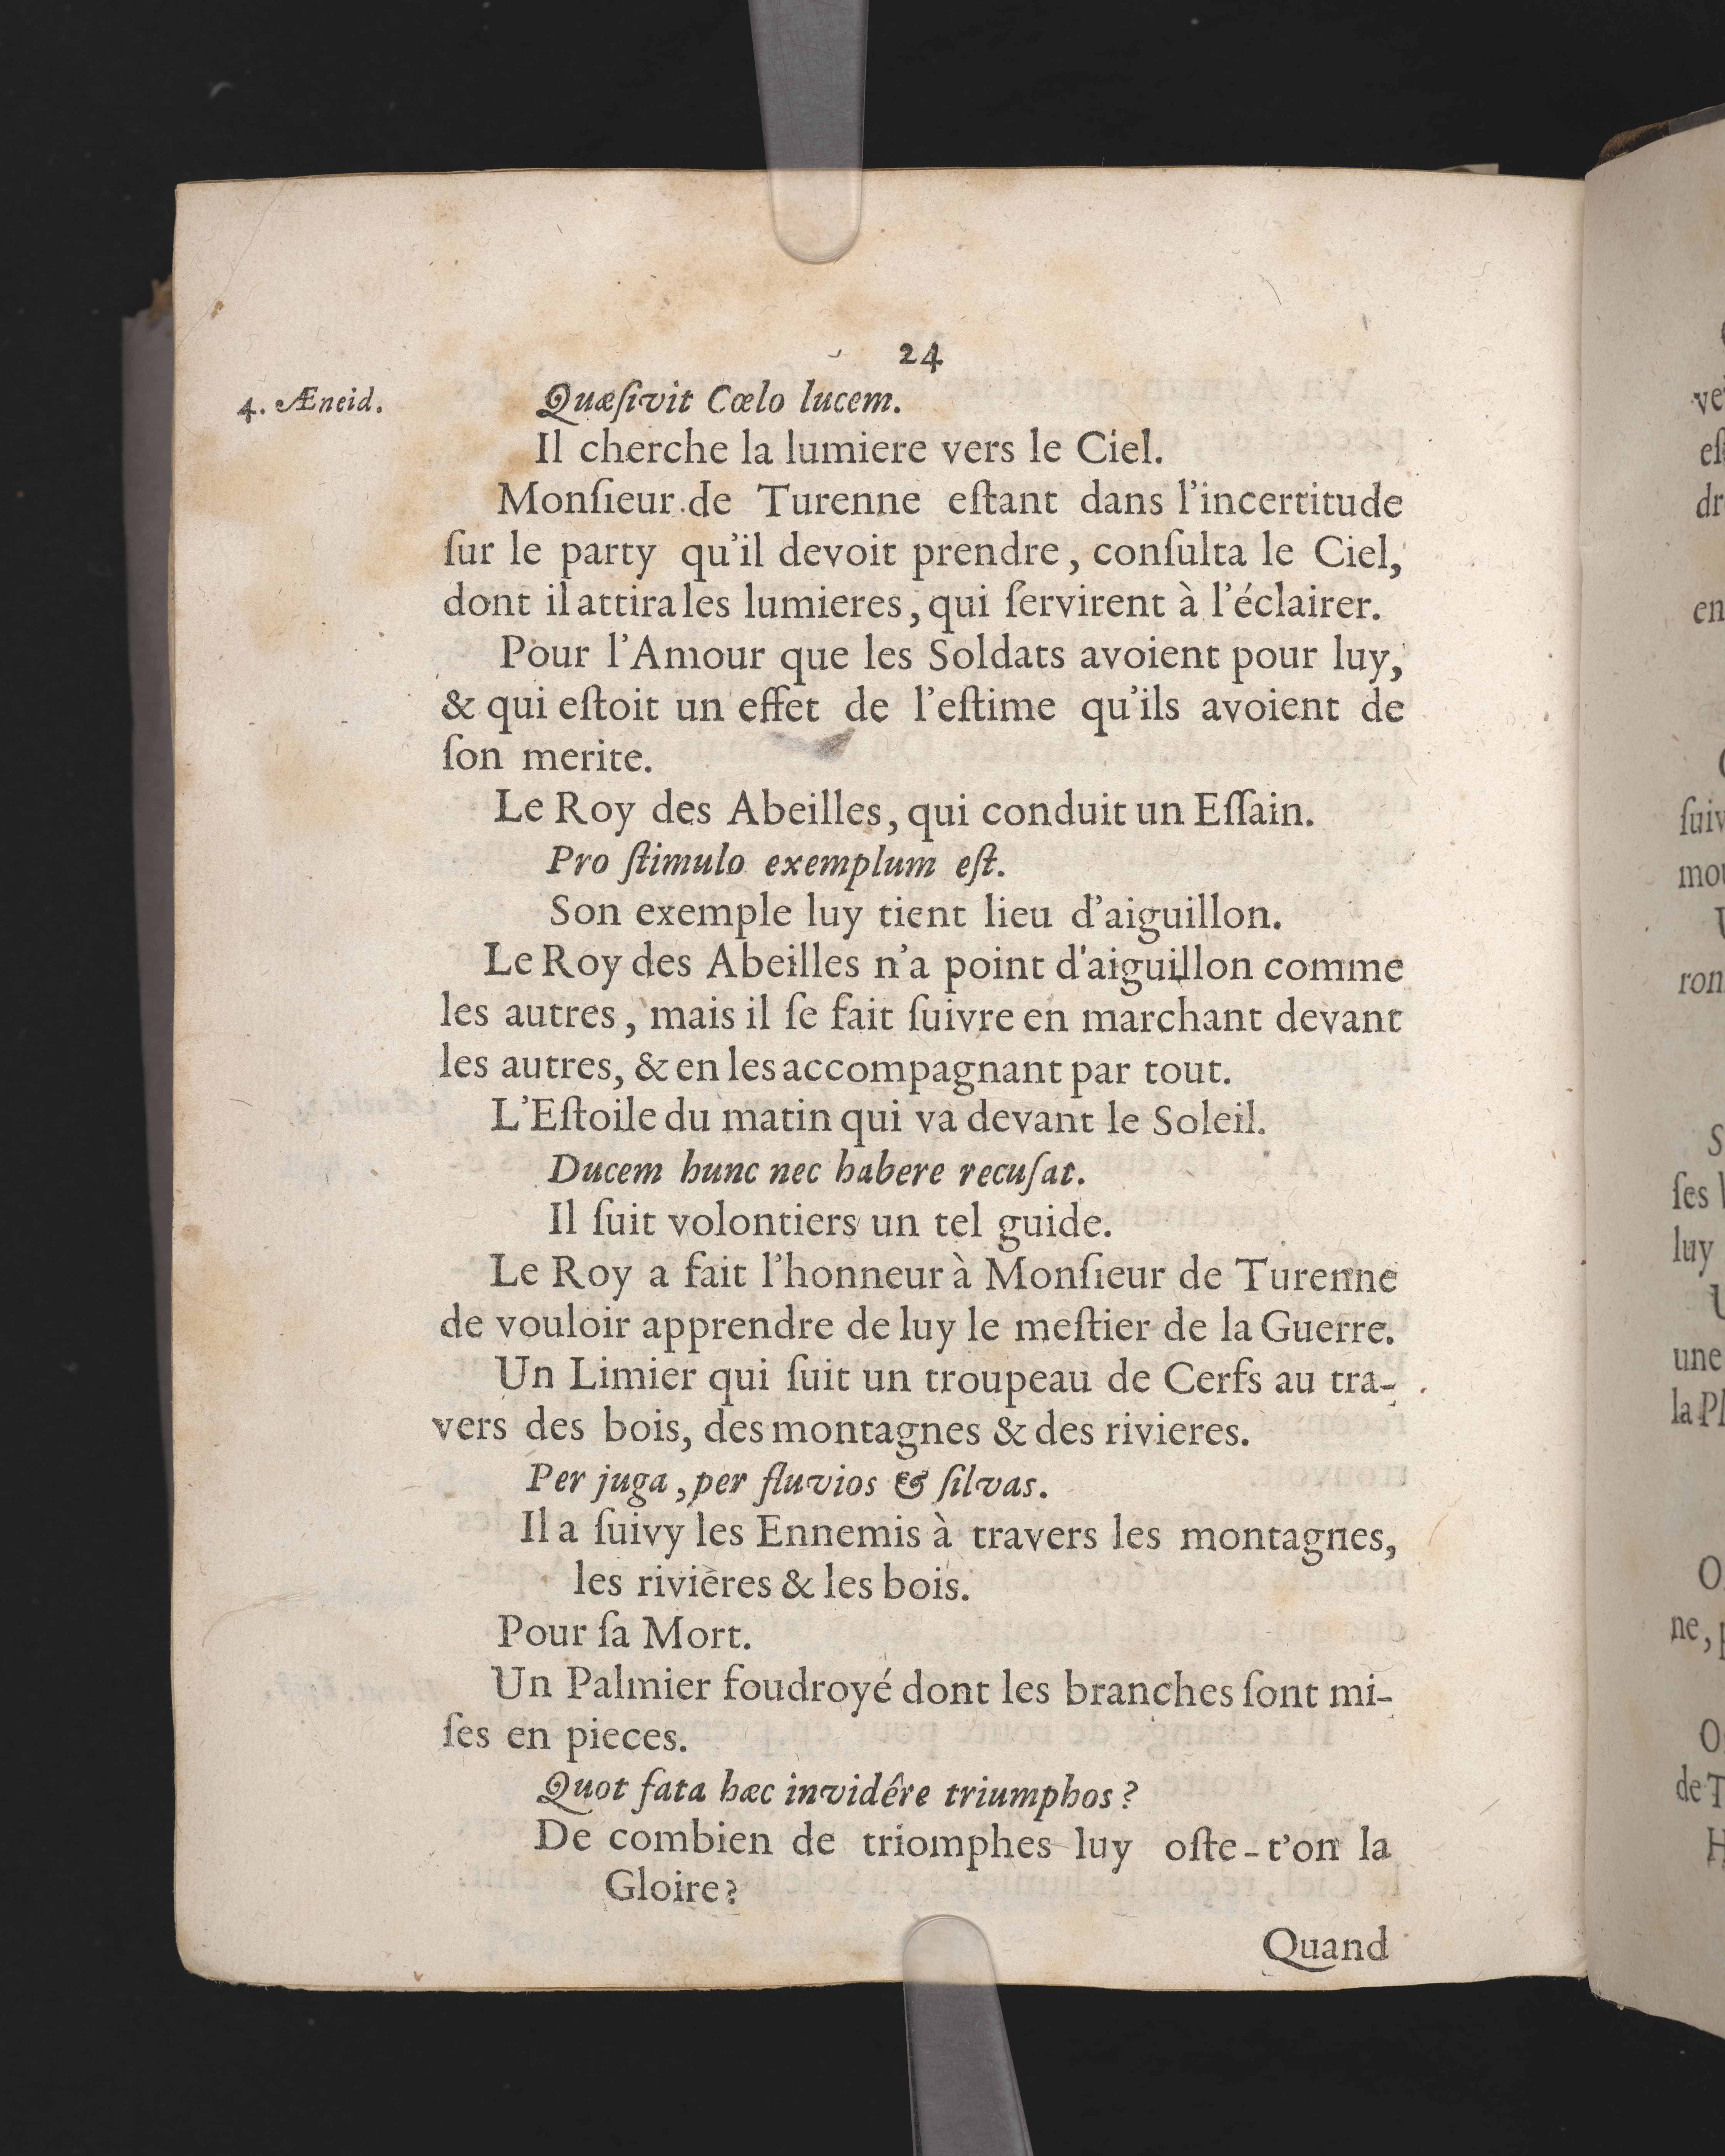 24
4. Æneid.
Quæſivit Cœlo lucem.
Il cherche la lumiere vers le Ciel.
Monſieur de Turenne eſtant dans l'incertitude
ſur le party qu'il devoit prendre, conſulta le Ciel,
dont il attira les lumieres, qui ſervirent à l'éclairer.
Pour l'Amour que les Soldats avoient pour luy,
& qui eſtoit un effet de l'eſtime qu'ils avoient de
ſon merite.
Le Roy des Abeilles, qui conduit un Eſſain.
Pro ſtimulo exemplum eſt.
Son exemple luy tient lieu d'aiguillon.
Le Roy des Abeilles n'a point d'aiguillon comme
les autres, mais il ſe fait ſuivre en marchant devant
les autres, & en les accompagnant par tout.
L'Eſtoile du matin qui va devant le Soleil.
Ducem hunc nec habere recuſat.
Il ſuit volontiers un tel guide.
Le Roy a fait l'honneur à Monſieur de Turenne
de vouloir apprendre de luy le meſtier de la Guerre.
Un Limier qui ſuit un troupeau de Cerfs au tra-
vers des bois, des montagnes & des rivieres.
Per juga, per fluvios & ſilvas.
Il a ſuivy les Ennemis à travers les montagnes,
les rivières & les bois.
Pour ſa Mort.
Un Palmier foudroyé dont les branches ſont mi-
ſes en pieces.
Quot fata hæc invidêre triumphos?
De combien de triomphes luy oſte-t'on la
Gloire?
Quand